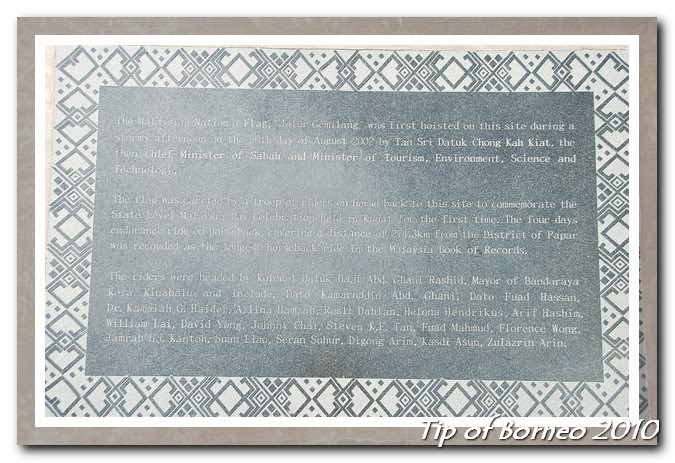 The Malaysian National Flag, "Jalur Gemilang" was first hoisted on this site during a
stormy afternoon on the 29th day of August 2002 by Tan Sri Datuk Chong Kah Kiat, the
then Chief Minister of Sabah and Minister of Tourism, Environment, Science and
Technology.
The flag was carried by a troop of riders on horse back to this site to commemorate the
State Level Malaysia Day Celebration held in Kudat for the first time. The four days
endurance ride on horseback, covering a distance of 274.3km from the District of Papar
was recorded as the longest horseback ride in the Malaysia Book of Records.
The riders were headed by Kolonel Datuk Haji Abd. Ghani Rashid, Mayor of Bandaraya
Kota Kinabalu and include, Dato Kamaruddin Abd. Ghani, Dato Fuad Hassan,
Dr. Kamsiah G. Haider, Azlina Hamzah, Rosli Dahlan, Helena Hendrikus, Arif Hashim,
William Lai, David Yong, Johnny Chai, Steven K.E. Tan, Fuad Mahmud, Florence Wong,
Jamrah Kantoh, Suan Liau, Seran Suhur, Digong Arim, Kasdi Asun, Zulazrin Arin.
Tip of Borneo 2010